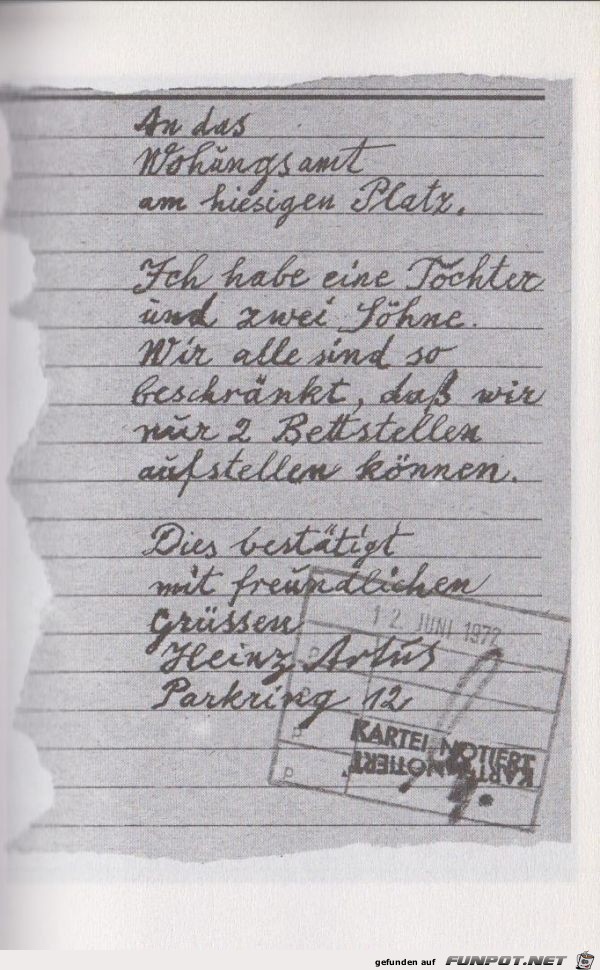 An das
Wohŭngsamt
am hiesigen Platz.
Ich habe eine Tochter
und zwei Söhne.
Wir alle sind so
beschränkt, daß wir
nur 2 Bettstellen
aufstellen können.
Dies bestätigt
mit freundlichen
Grüssen
Heinz Artus
Parkring 12
12. JUNI 1972
P
KARTEI NOTIERT
KARTEI NOTIERT
P
P
gefunden auf FUNPOT.NET